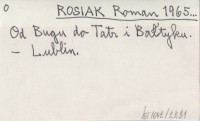 ROSIAK Roman 1965...
Od Bugu do Tatr i Bałtyku.
– Lublin.